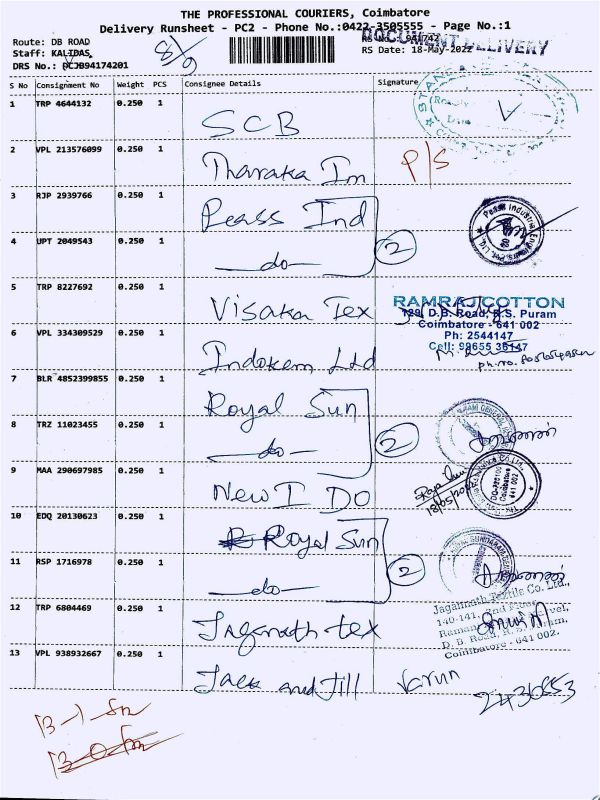 THE PROFESSIONAL COURIERS, Coimbatore
Delivery Runsheet - PC2 - Phone No.:0422-3505555 - Page No.:1
Route: DB ROAD
Staff: KALIDAS,
DRS No.: DCJB94174201
RS No.: 941742
RS Date: 18-May-2022
DOCUMENT DELIVERY
S No Consignment No Weight PCS Consignee Details Signature
1 TRP 4644132 0.250 1 SCB
2 VPL 213576099 0.250 1 Tharaka Im P/S
3 RJP 2939766 0.250 1 Peass Ind
4 UPT 2049543 0.250 1 —do— 2
5 TRP 8227692 0.250 1 Visaka Tex
RAMRAJ COTTON
129, D.B. Road, R.S. Puram
Coimbatore - 641 002
Ph: 2544147
Cell: 98655 36147
6 VPL 334309529 0.250 1 Indokem Ltd
7 BLR 4852399855 0.250 1 Royal Sun
8 TRZ 11023455 0.250 1 —do— 2
9 MAA 290697985 0.250 1 New I DO
10 EDQ 20130623 0.250 1 Royal Sun
11 RSP 1716978 0.250 1 —do— 2
12 TRP 6804469 0.250 1 Jaganath tex
Jagannath Textile Co. Ltd.,
D. B. Road, R. S. Puram,
Coimbatore - 641 002.
13 VPL 938932667 0.250 1 Jack and Jill Varun